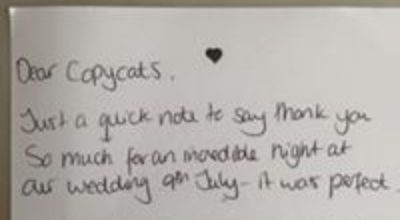 Dear Copycats.
Just a quick note to say thank you
So much for an incredible night at
our wedding 9th July - it was perfect.